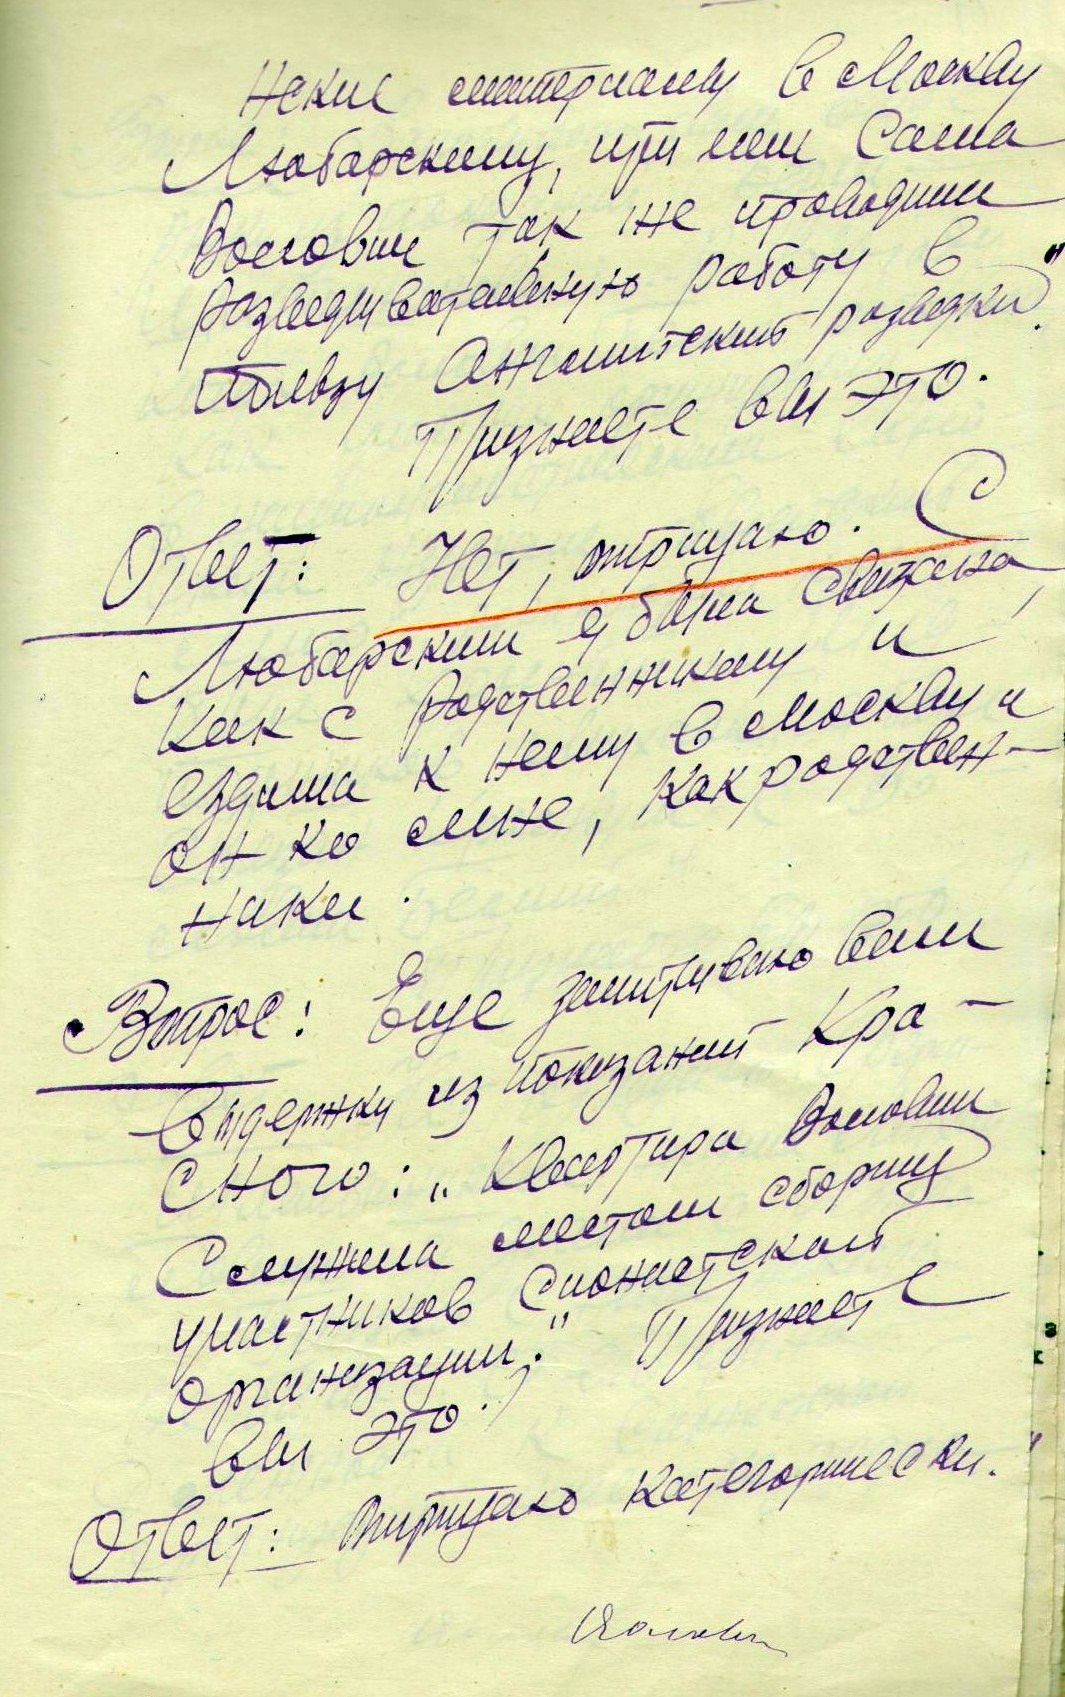 ские материалы в Москву
Любарскому, при чем сама
Воловик так же проводили
разведывательную работу в
пользу Английский разведки".
Признаете вы это.
Ответ: Нет, отрицаю. С
Любарским я была связана,
как с родственником и
ездила к нему в Москву и
он ко мне, как родствен-
ники.
Вопрос: Еще зачитываю вам
выдержку из показаний Кра-
сного: "Квартира Воловик
Служила местом сборищ
участников Сионистской
организации." Признаете
вы это.
Ответ: отрицаю категорически.